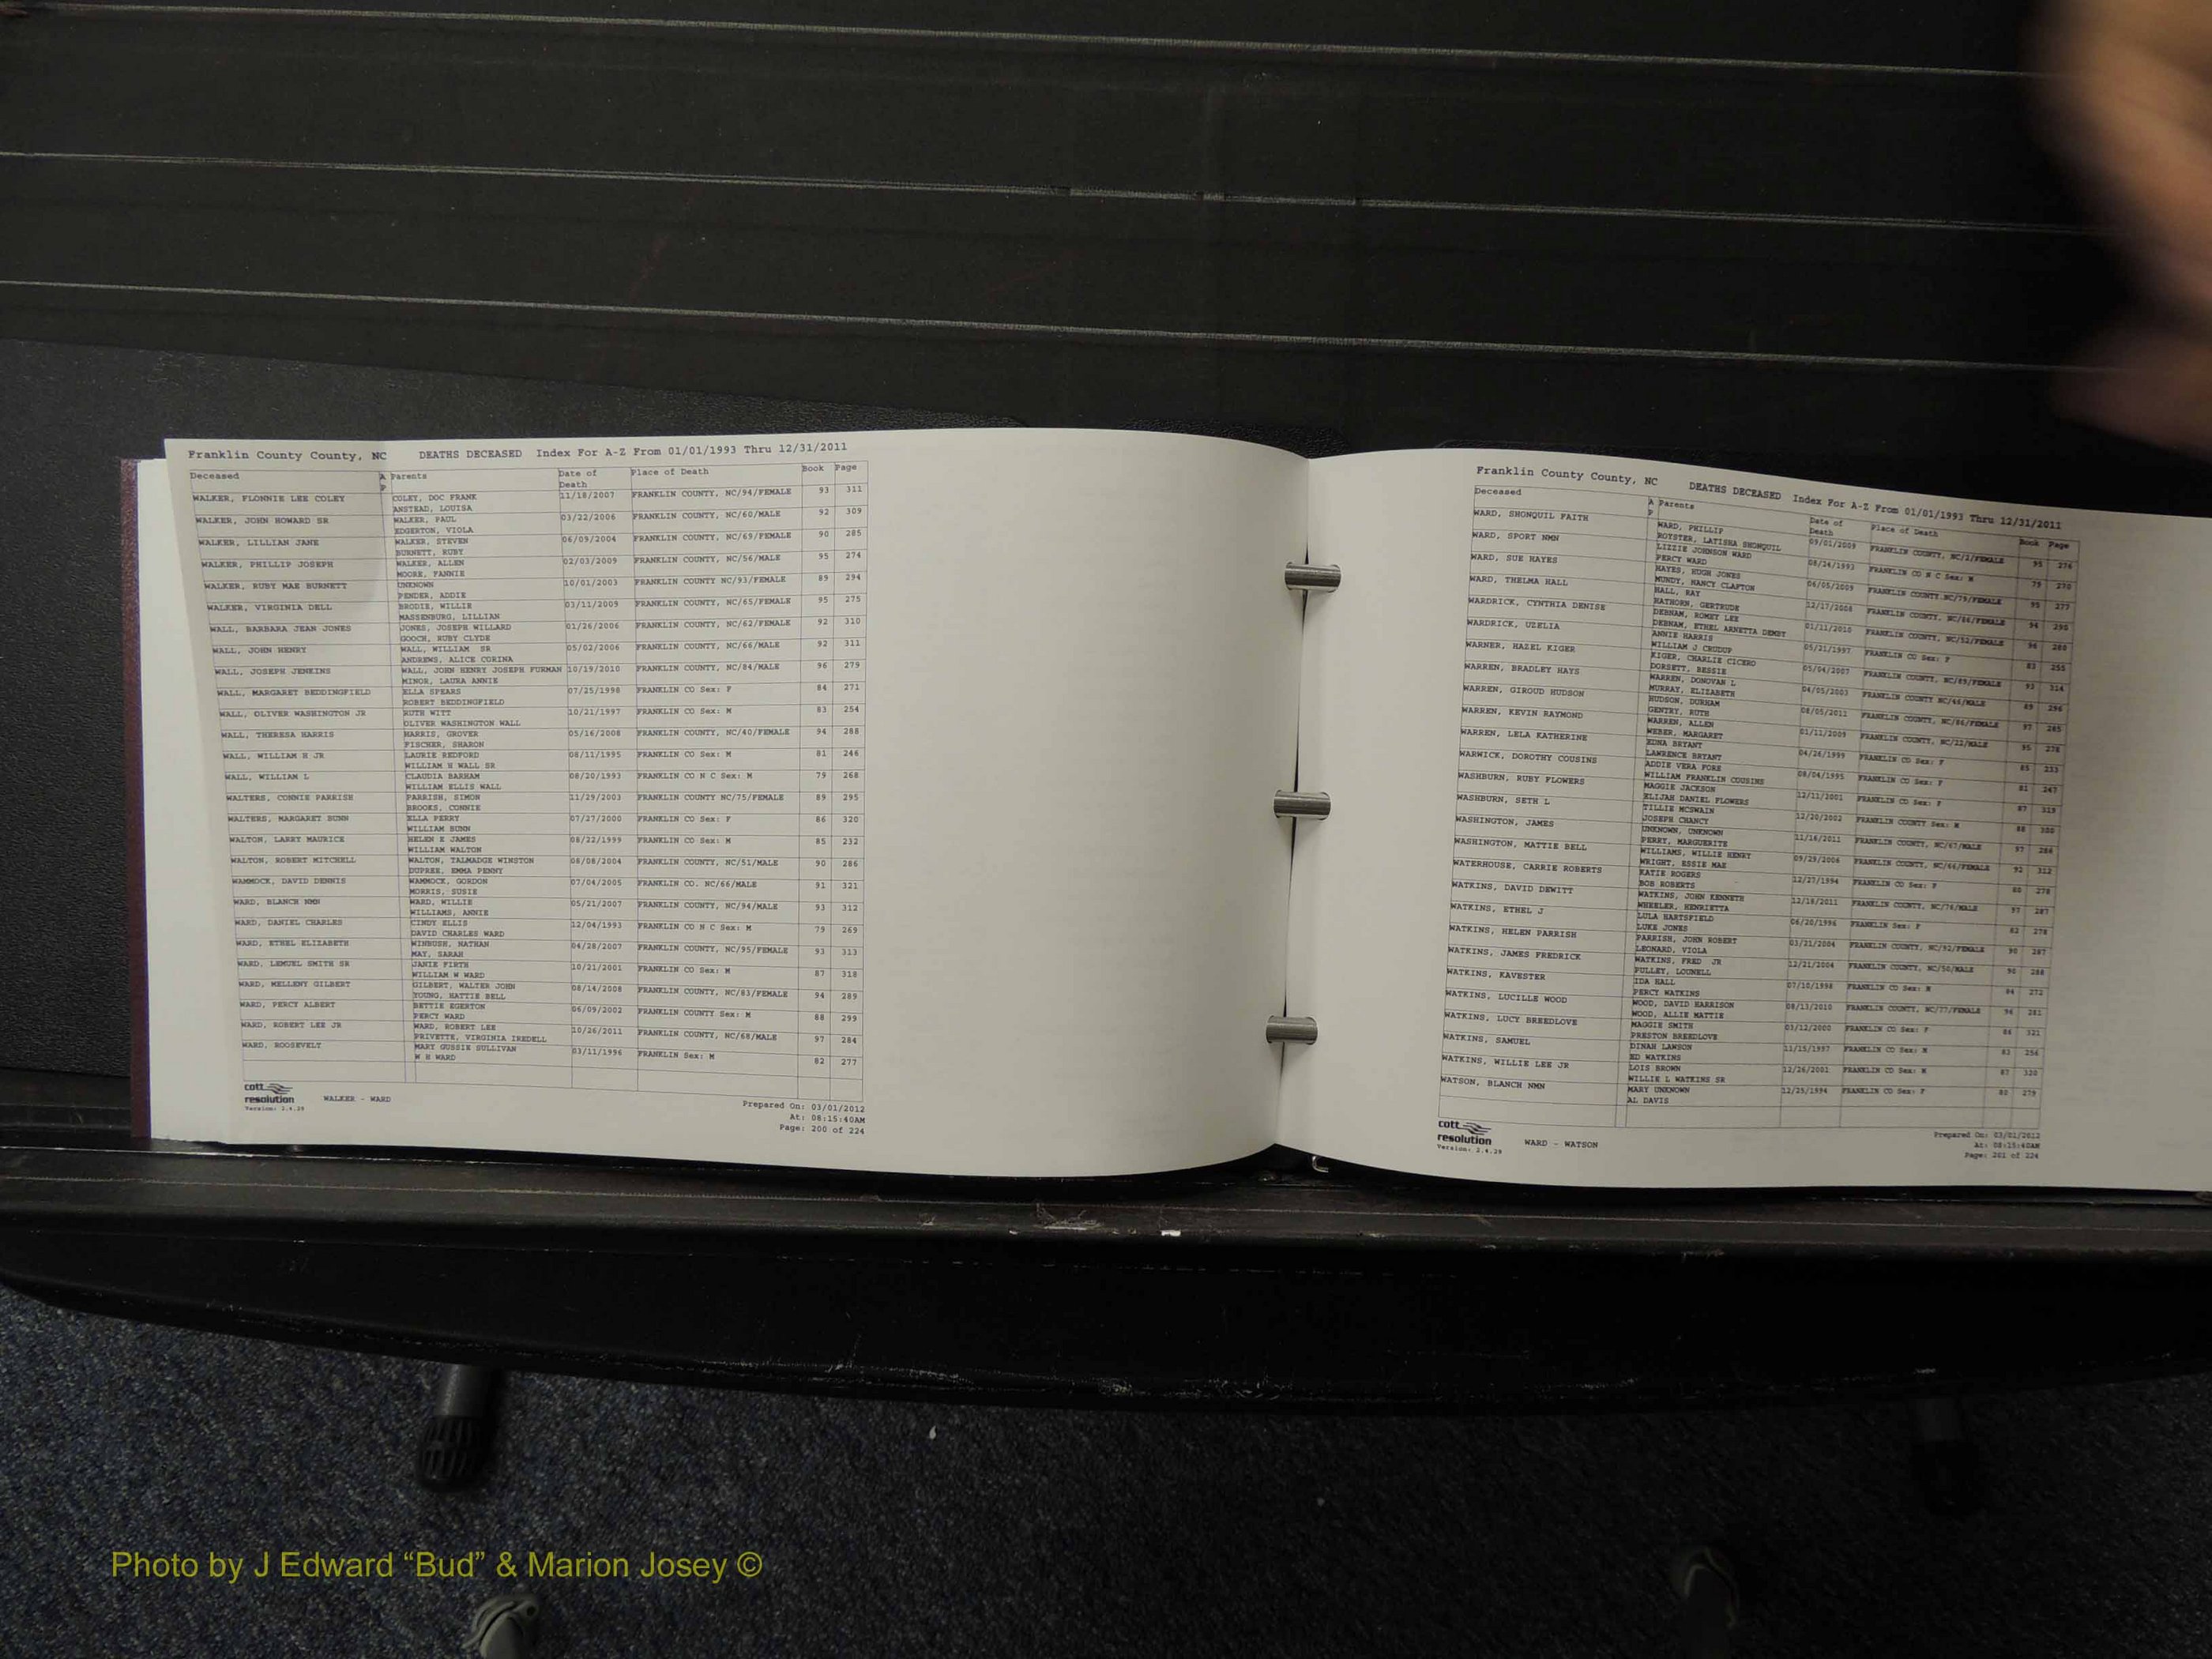 Franklin County County, NC DEATHS DECEASED Index For A-Z From 01/01/1993 Thru 12/31/2011
Deceased A P Parents Date of Death Place of Death Book Page
WALKER, FLONNIE LEE COLEY COLEY, DOC FRANK 11/18/2007 FRANKLIN COUNTY, NC/94/FEMALE 93 311
ANSTEAD, LOUISA
WALKER, JOHN HOWARD SR WALKER, PAUL 03/22/2006 FRANKLIN COUNTY, NC/60/MALE 92 309
EDGERTON, VIOLA
WALKER, LILLIAN JANE WALKER, STEVEN 06/09/2004 FRANKLIN COUNTY, NC/69/FEMALE 90 285
BURNETT, RUBY
WALKER, PHILLIP JOSEPH WALKER, ALLEN 02/03/2009 FRANKLIN COUNTY, NC/56/MALE 95 274
MOORE, FANNIE
WALKER, RUBY MAE BURNETT UNKNOWN 10/01/2003 FRANKLIN COUNTY NC/93/FEMALE 89 294
PENDER, ADDIE
WALKER, VIRGINIA DELL BRODIE, WILLIE 03/11/2009 FRANKLIN COUNTY, NC/65/FEMALE 95 275
MASSENBURG, LILLIAN
WALL, BARBARA JEAN JONES JONES, JOSEPH WILLARD 01/26/2006 FRANKLIN COUNTY, NC/62/FEMALE 92 310
GOOCH, RUBY CLYDE
WALL, JOHN HENRY WALL, WILLIAM SR 05/02/2006 FRANKLIN COUNTY, NC/66/MALE 92 311
ANDREWS, ALICE CORINA
WALL, JOSEPH JENKINS WALL, JOHN HENRY JOSEPH FURMAN 10/19/2010 FRANKLIN COUNTY, NC/84/MALE 96 279
MINOR, LAURA ANNIE
WALL, MARGARET BEDDINGFIELD ELLA SPEARS 07/25/1998 FRANKLIN CO Sex: F 84 271
ROBERT BEDDINGFIELD
WALL, OLIVER WASHINGTON JR RUTH WITT 10/21/1997 FRANKLIN CO Sex: M 83 254
OLIVER WASHINGTON WALL
WALL, THERESA HARRIS HARRIS, GROVER 05/16/2008 FRANKLIN COUNTY, NC/40/FEMALE 94 288
FISCHER, SHARON
WALL, WILLIAM H JR LAURIE REDFORD 08/11/1995 FRANKLIN CO Sex: M 81 246
WILLIAM H WALL SR
WALL, WILLIAM L CLAUDIA BARHAM 08/20/1993 FRANKLIN CO N C Sex: M 79 268
WILLIAM ELLIS WALL
WALTERS, CONNIE PARRISH PARRISH, SIMON 11/29/2003 FRANKLIN COUNTY NC/75/FEMALE 89 295
BROOKS, CONNIE
WALTERS, MARGARET BUNN ELLA PERRY 07/27/2000 FRANKLIN CO Sex: F 86 320
WILLIAM BUNN
WALTON, LARRY MAURICE HELEN E JAMES 08/22/1999 FRANKLIN CO Sex: M 85 232
WILLIAM WALTON
WALTON, ROBERT MITCHELL WALTON, TALMADGE WINSTON 08/08/2004 FRANKLIN COUNTY, NC/51/MALE 90 286
DUPREE, EMMA PENNY
WAMMOCK, DAVID DENNIS WAMMOCK, GORDON 07/04/2005 FRANKLIN CO. NC/66/MALE 91 321
MORRIS, SUSIE
WARD, BLANCH NMN WARD, WILLIE 05/21/2007 FRANKLIN COUNTY, NC/94/MALE 93 312
WILLIAMS, ANNIE
WARD, DANIEL CHARLES CINDY ELLIS 12/04/1993 FRANKLIN CO N C Sex: M 79 269
DAVID CHARLES WARD
WARD, ETHEL ELIZABETH WINBUSH, NATHAN 04/28/2007 FRANKLIN COUNTY, NC/95/FEMALE 93 313
MAY, SARAH
WARD, LEMUEL SMITH SR JANIE FIRTH 10/21/2001 FRANKLIN CO Sex: M 87 318
WILLIAM W WARD
WARD, MELLENY GILBERT GILBERT, WALTER JOHN 08/14/2008 FRANKLIN COUNTY, NC/83/FEMALE 94 289
YOUNG, HATTIE BELL
WARD, PERCY ALBERT BETTIE EGERTON 06/09/2002 FRANKLIN COUNTY Sex: M 88 299
PERCY WARD
WARD, ROBERT LEE JR WARD, ROBERT LEE 10/26/2011 FRANKLIN COUNTY, NC/68/MALE 97 284
PRIVETTE, VIRGINIA IREDELL
WARD, ROOSEVELT MARY GUSSIE SULLIVAN 03/11/1996 FRANKLIN Sex: M 82 277
W H WARD
cott
resolution WALKER - WARD
Version: 2.4.29
Prepared On: 03/01/2012
At: 08:15:40AM
Page: 200 of 224
Franklin County County, NC DEATHS DECEASED Index For A-Z From 01/01/1993 Thru 12/31/2011
Deceased A P Parents Date of Death Place of Death Book Page
WARD, SHONQUIL FAITH WARD, PHILLIP 09/01/2009 FRANKLIN COUNTY, NC/2/FEMALE 95 276
ROYSTER, LATISHA SHONQUIL
WARD, SPORT NMN LIZZIE JOHNSON WARD 08/14/1993 FRANKLIN CO N C Sex: M 79 270
PERCY WARD
WARD, SUE HAYES HAYES, HUGH JONES 06/05/2009 FRANKLIN COUNTY NC/79/FEMALE 95 277
MUNDY, NANCY CLAPTON
WARD, THELMA HALL HALL, RAY 12/17/2008 FRANKLIN COUNTY, NC/86/FEMALE 94 290
HATHORN, GERTRUDE
WARDRICK, CYNTHIA DENISE DEBNAM, ROMEY LEE 01/11/2010 FRANKLIN COUNTY, NC/52/FEMALE 96 280
DEBNAM, ETHEL ARNETTA DEMBY
WARDRICK, UZELIA ANNIE HARRIS 05/21/1997 FRANKLIN CO Sex: F 83 255
WILLIAM J CRUDUP
WARNER, HAZEL KIGER KIGER, CHARLIE CICERO 05/04/2007 FRANKLIN COUNTY, NC/89/FEMALE 93 314
DORSETT, BESSIE
WARREN, BRADLEY HAYS WARREN, DONOVAN L 04/05/2003 FRANKLIN COUNTY NC/45/MALE 89 296
MURRAY, ELIZABETH
WARREN, GIROUD HUDSON HUDSON, DURHAM 08/05/2011 FRANKLIN COUNTY, NC/86/FEMALE 97 285
GENTRY, RUTH
WARREN, KEVIN RAYMOND WARREN, ALLEN 01/11/2009 FRANKLIN COUNTY, NC/22/MALE 95 278
WEBER, MARGARET
WARREN, LELA KATHERINE EDNA BRYANT 04/26/1999 FRANKLIN CO Sex: F 85 233
LAWRENCE BRYANT
WARWICK, DOROTHY COUSINS ADDIE VERA FORE 08/04/1995 FRANKLIN CO Sex: F 81 247
WILLIAM FRANKLIN COUSINS
WASHBURN, RUBY FLOWERS MAGGIE JACKSON 12/11/2001 FRANKLIN CO Sex: F 87 319
ELIJAH DANIEL FLOWERS
WASHBURN, SETH L TILLIE MCSWAIN 12/20/2002 FRANKLIN COUNTY Sex: M 88 300
JOSEPH CHANCY
WASHINGTON, JAMES UNKNOWN, UNKNOWN 11/16/2011 FRANKLIN COUNTY, NC/67/MALE 97 286
PERRY, MARGUERITE
WASHINGTON, MATTIE BELL WILLIAMS, WILLIE HENRY 09/29/2006 FRANKLIN COUNTY, NC/66/FEMALE 92 312
WRIGHT, ESSIE MAE
WATERHOUSE, CARRIE ROBERTS KATIE ROGERS 12/27/1994 FRANKLIN CO Sex: F 80 278
BOB ROBERTS
WATKINS, DAVID DEWITT WATKINS, JOHN KENNETH 12/18/2011 FRANKLIN COUNTY, NC/76/MALE 97 287
WHEELER, HENRIETTA
WATKINS, ETHEL J LULA HARTSFIELD 06/20/1996 FRANKLIN Sex: F 82 278
LUKE JONES
WATKINS, HELEN PARRISH PARRISH, JOHN ROBERT 03/21/2004 FRANKLIN COUNTY, NC/92/FEMALE 90 287
LEONARD, VIOLA
WATKINS, JAMES FREDRICK WATKINS, FRED JR 12/21/2004 FRANKLIN COUNTY, NC/50/MALE 90 288
PULLEY, LOUNELL
WATKINS, KAVESTER IDA HALL 07/10/1998 FRANKLIN CO Sex: M 84 272
PERCY WATKINS
WATKINS, LUCILLE WOOD WOOD, DAVID HARRISON 08/13/2010 FRANKLIN COUNTY, NC/77/FEMALE 96 281
WOOD, ALLIE MATTIE
WATKINS, LUCY BREEDLOVE MAGGIE SMITH 03/12/2000 FRANKLIN CO Sex: F 86 321
PRESTON BREEDLOVE
WATKINS, SAMUEL DINAH LAWSON 11/15/1997 FRANKLIN CO Sex: M 83 256
ED WATKINS
WATKINS, WILLIE LEE JR LOIS BROWN 12/26/2001 FRANKLIN CO Sex: M 87 320
WILLIE L WATKINS SR
WATSON, BLANCH NMN MARY UNKNOWN 12/25/1994 FRANKLIN CO Sex: F 80 279
AL DAVIS
cott
resolution WARD - WATSON
Version: 2.4.29
Prepared On: 03/01/2012
At: 08:15:40AM
Page: 201 of 224
Photo by J Edward “Bud” & Marion Josey ©